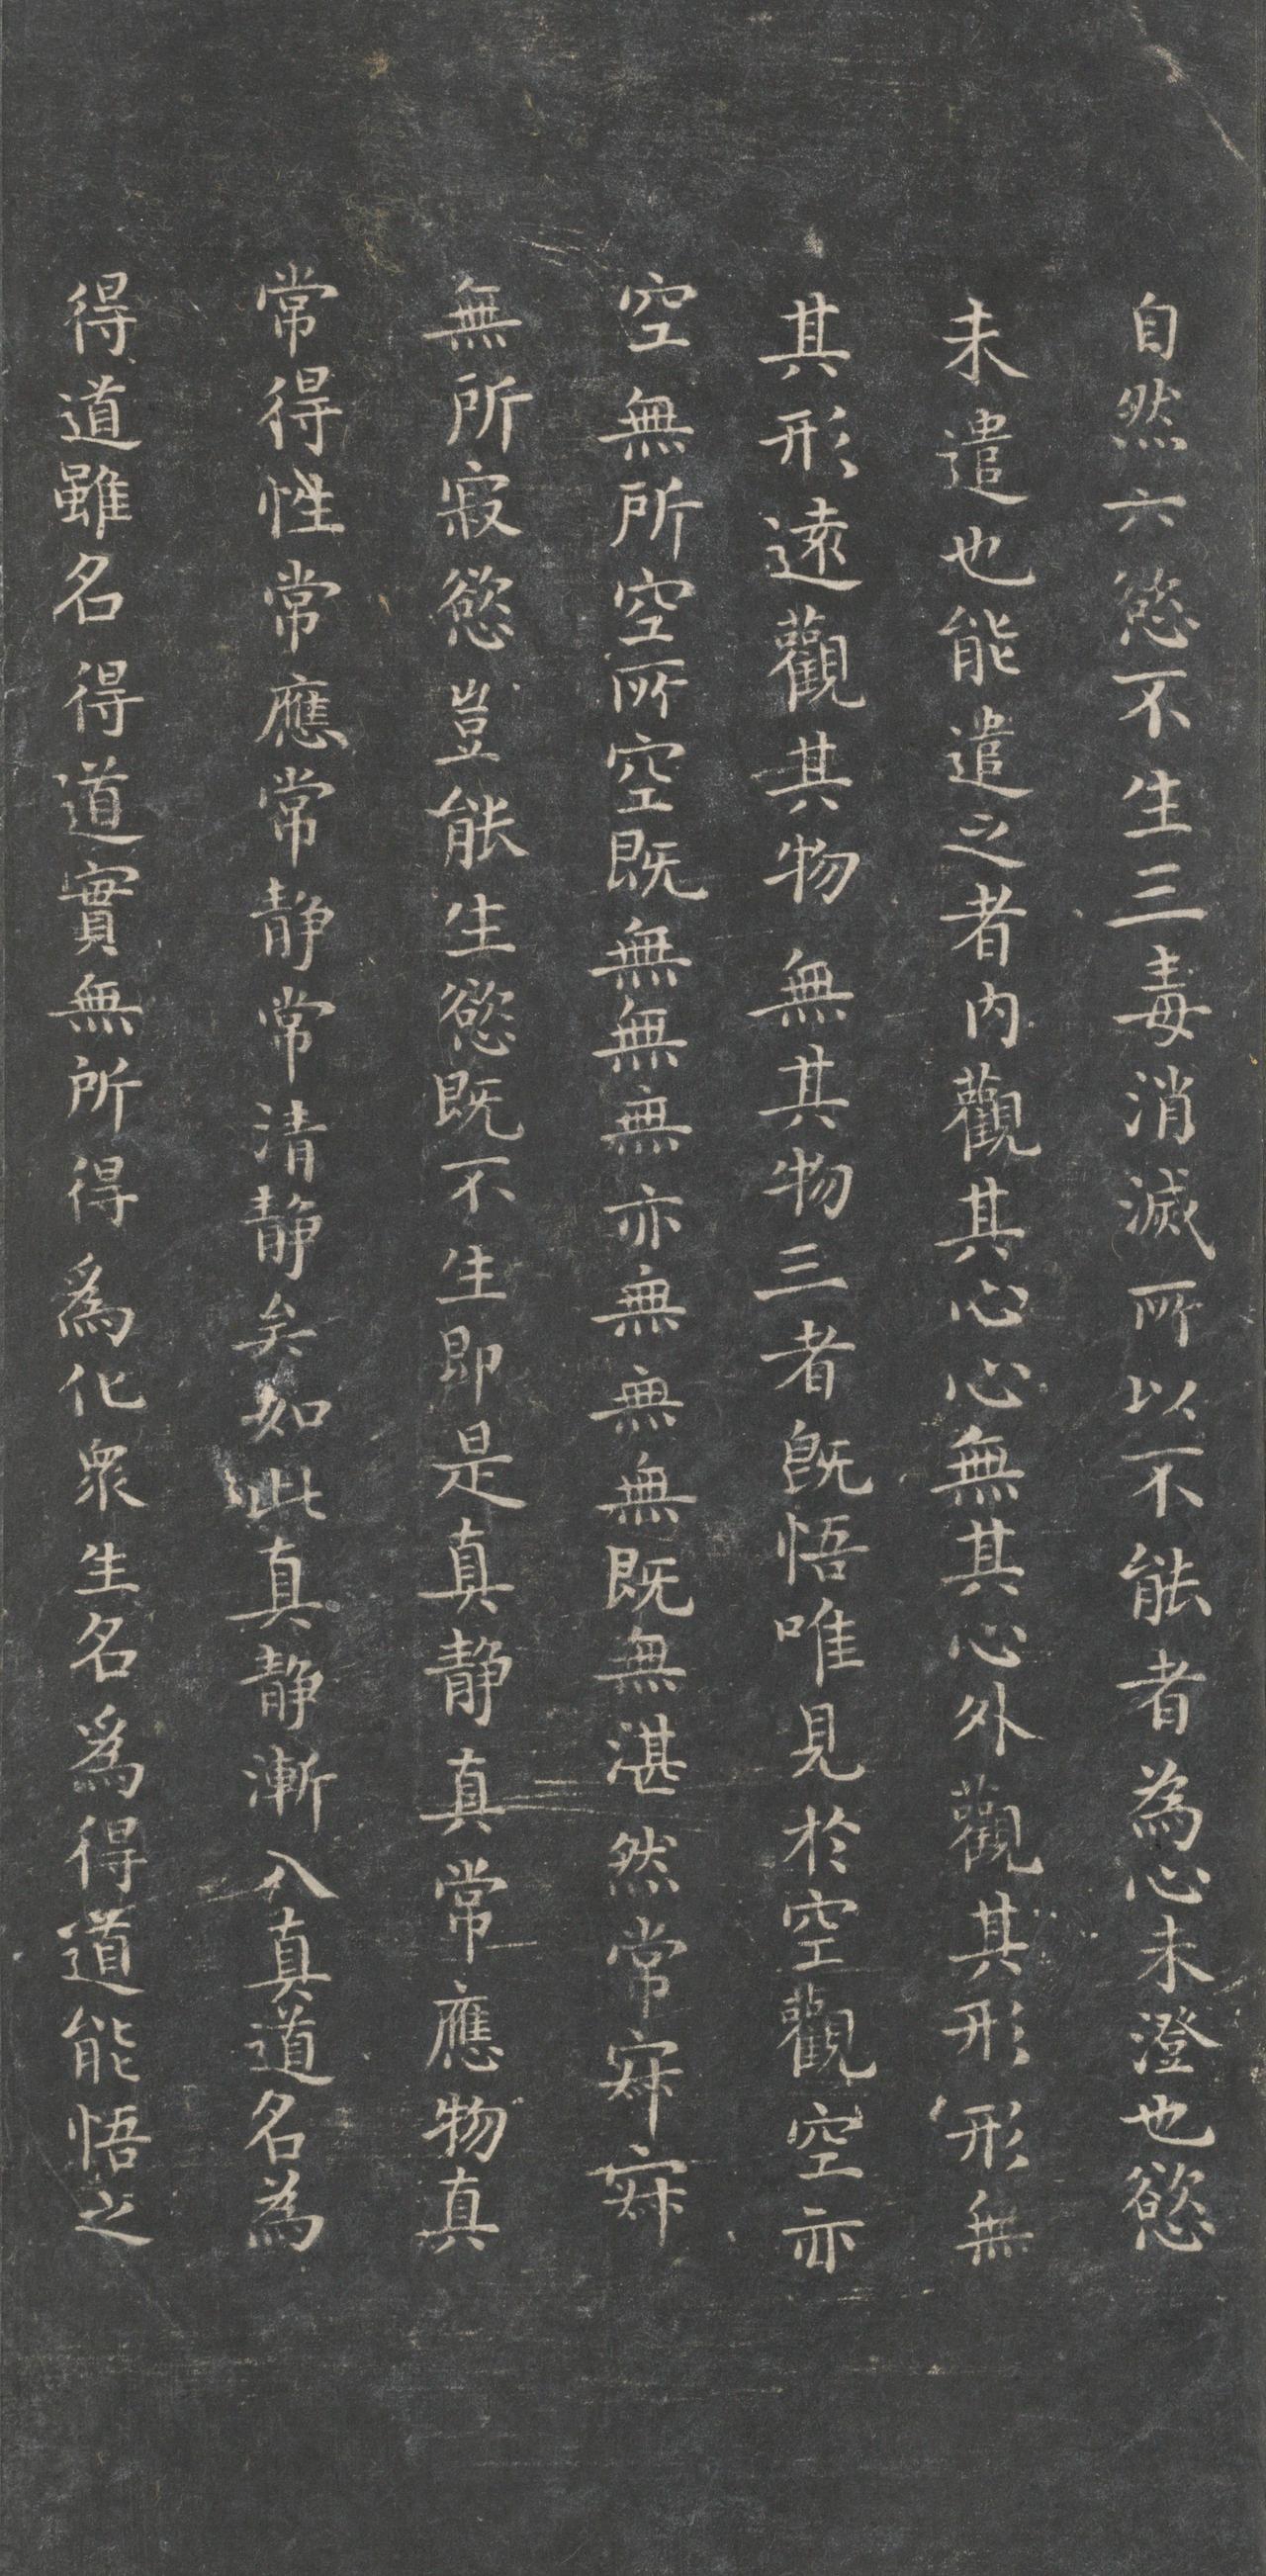 自然六慾不生三毒消滅所以不能者為心未澄也慾
未遣也能遣之者内觀其心心無其心外觀其形形無
其形遠觀其物無其物三者既悟唯見於空觀空亦
空無所空所空既無無無亦無無無既無湛然常寂寂
無所寂慾豈能生慾既不生即是真静真常應物真
常得性常應常静常清静矣如此真静漸入真道名為
得道雖名得道實無所得為化衆生名為得道能悟之